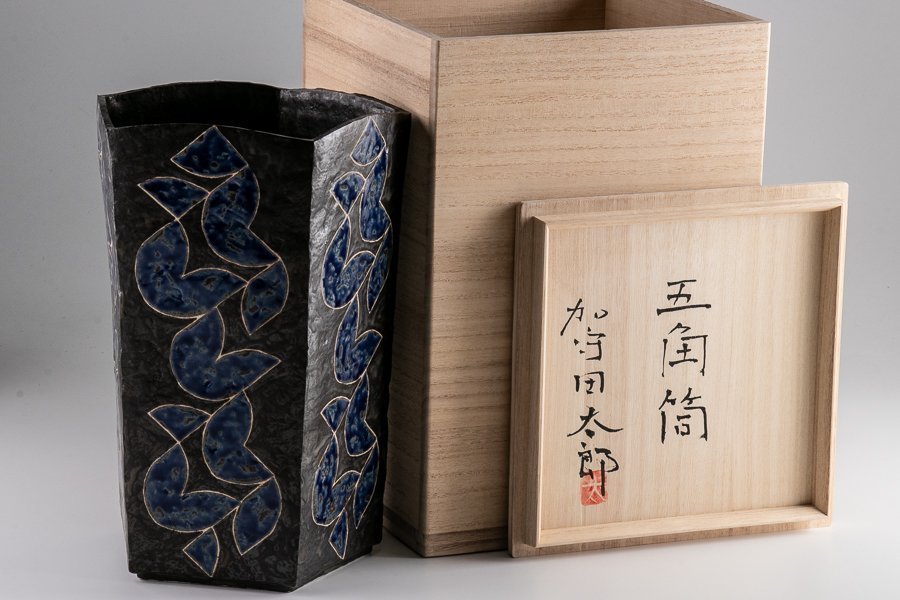 五角筒
加守田太郎
太